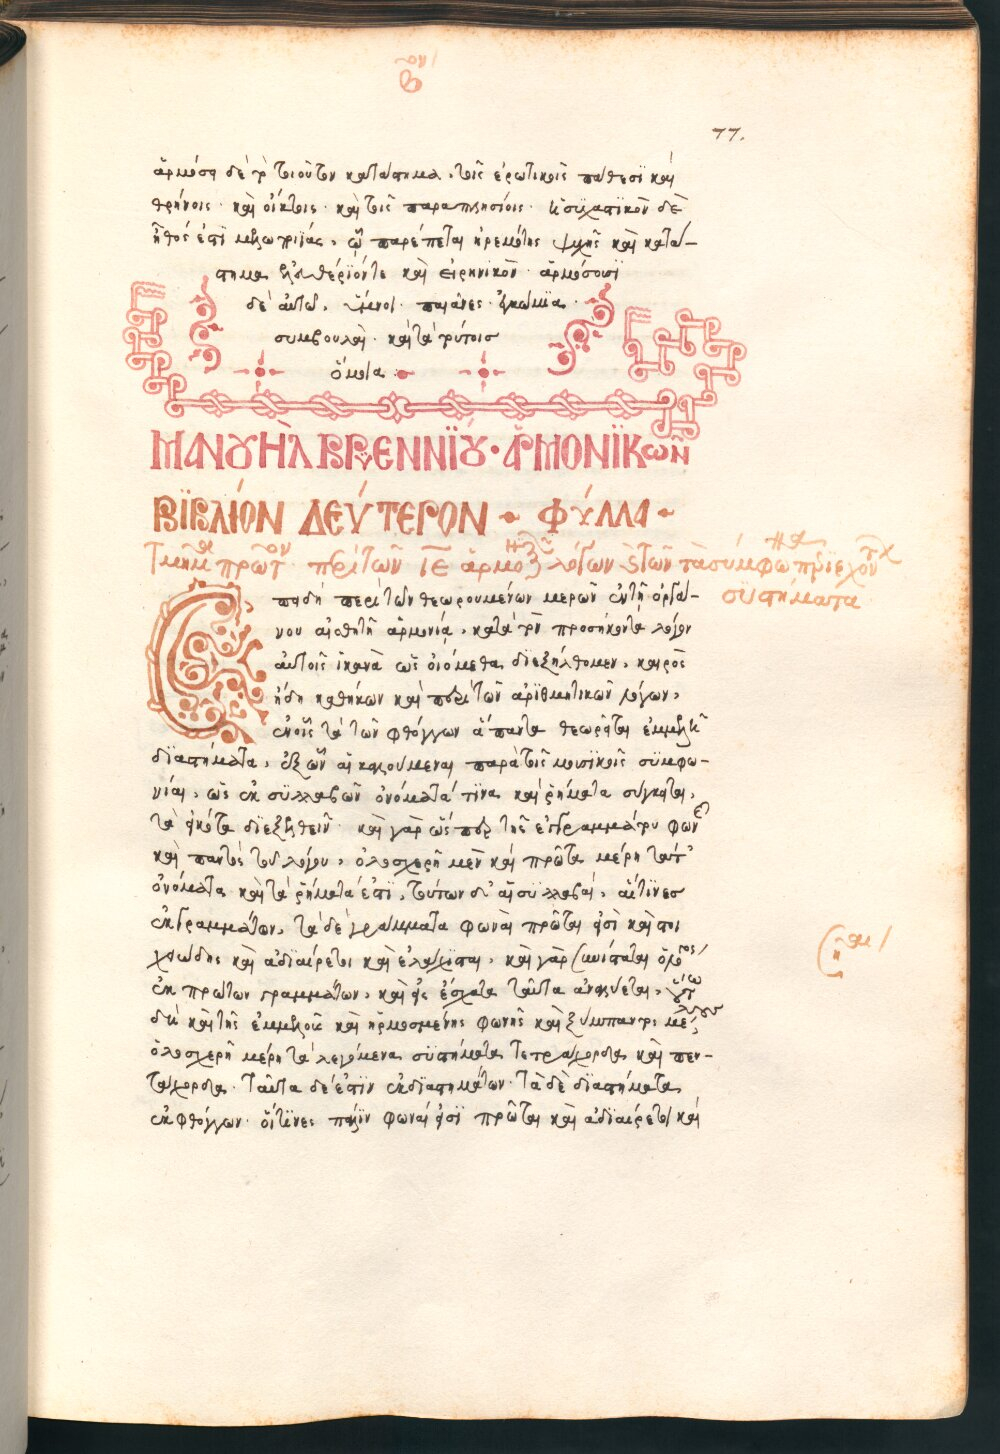 βον
77.
ἁρμόσῃ δὲ τὸ τοιοῦτον κατάστημα. τοῖς ἐρωτικοῖς πάθεσϊ καὶ
θρήνοις· καὶ οἴκτοις· καὶ τοῖς παραπλησίοις· ἡσυχαστικὸν δὲ
ἦθος ἐστὶ μελοποιΐας, ᾧ παρέπεται ἠρεμότης ψυχῆς καὶ κατά-
στημα ἐλευθέριόν τε καὶ εἰρηνικὸν· ἁρμόσουσϊ
δὲ αὐτῷ, ὕμνοι· παιᾶνες· ἐγκώμϊα·
συμβουλαὶ· καὶ τὰ τούτοις
ὅμοια
ΜΑΝΟΥῊΛ ΒΡΥΕΝΝΪΟΥ· ἉΡΜΟΝΪΚῶΝ
ΒΪΒΛΊΟΝ ΔΕΎΤΕΡΟΝ · ΦΎΛΛΑ ·
Τμῆμα πρῶτον· περὶ τῶν ιε ἁρμο λόγων τῶν τὰ σύμφω περϊεχόντ
συστήματα
Ἐπειδὴ περὶ τῶν θεωρουμένων μερῶν ἐν τῇ ὀργά-
νου αἰσθητῇ ἁρμονίᾳ, κατὰ τὸν προσήκοντα λόγον
αὐτοῖς ἱκανὰ ὡς οἰόμεθα διεξήλθομεν, καιρὸς
ἤδη καθήκων καὶ περὶ τῶν ἀρϊθμητικῶν λόγων,
ἐν οἷς τὰ τῶν φθόγγων ἅπαντα θεωρεῖται ἐμμελῆ
δϊαστήματα, ἐξ ὧν αἱ καλούμεναι παρὰ τοῖς μουσϊκοῖς συμφω-
νίαι, ὡς ἐκ συλλαβῶν ὀνόματά τινα καὶ ῥήματα σύγκεινται,
τὰ εἰκότα διεξελθεῖν· καὶ γὰρ ὥσπερ τῆς ἐγγραμμάτου φων
καὶ παντὸς τοῦ λόγου, ὁλοσχερῆ μὲν καὶ πρῶτα μέρη τά τ'
ὀνόματα καὶ τὰ ῥήματά ἐστϊ, τούτων δ' αἱ συλλαβαί, αἵτϊνες
ἐκ γραμμάτων, τὰ δὲ γράμματα φωναὶ πρῶται εἰσὶ καὶ στοι
χειώδεις καὶ ἀδϊαίρετοι καὶ ἐλάχισται, καὶ γὰρ συνίσταται ὁ λόγος
ἐκ πρώτων γραμμάτων, καὶ εἰς ἔσχατα ταῦτα ἀναλύεται, οὕτω
δὴ καὶ τῆς ἐμμελοῦς καὶ ἡρμοσμένης φωνῆς καὶ ξύμπαντος μέλους
ὁλοσχερῆ μέρη τὰ λεγόμενα συστήματα τετράχορδα καὶ πεν-
τάχορδα· ταῦτα δέ ἐστϊν ἐκ δϊαστημάτων· τὰ δὲ δϊαστήματα
ἐκ φθόγγων· οἵτϊνες πάλϊν φωναί εἰσϊ πρῶται καὶ ἀδϊαίρετοι καὶ